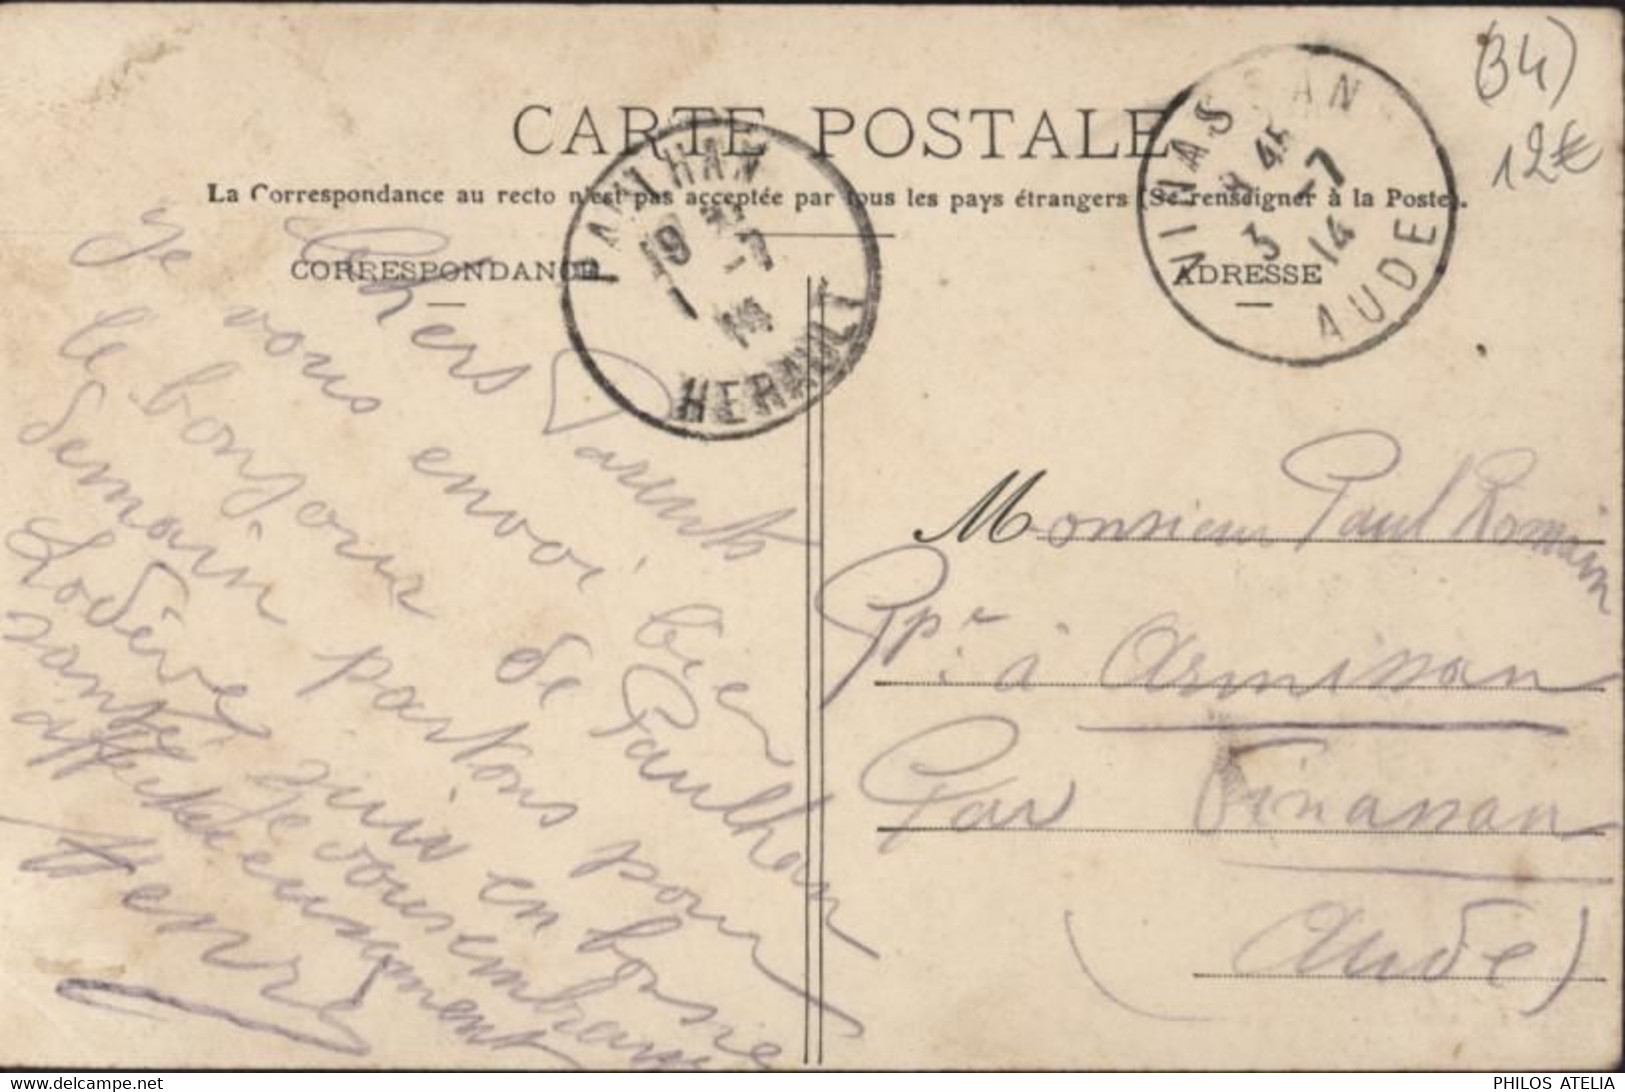 (34)
12€
CARTE POSTALE
La Correspondance au recto n'est pas acceptée par tous les pays étrangers (Se renseigner à la Poste).
CORRESPONDANCE
ADRESSE
PAULHAN
9
HERAULT
VINASSAN
9 45
3 -7
14
AUDE
Chers Parents
Je vous envoi bien
le bonjour de Paulhan
demain partons pour
Lodève suis en bonne
santé Je vous embrasse
affectueusement
Henri
Monsieur Paul Romain
Ppre à Armissan
Par Vinassan
(Aude)
PHILOS ATELIA
www.delcampe.net